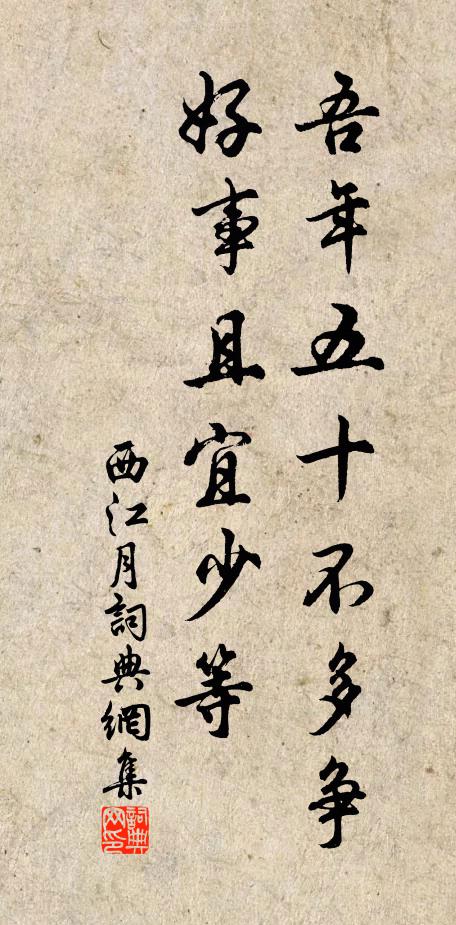 吾年五十不多争
好事且宜少等
西江月詞典網集
詞典网印